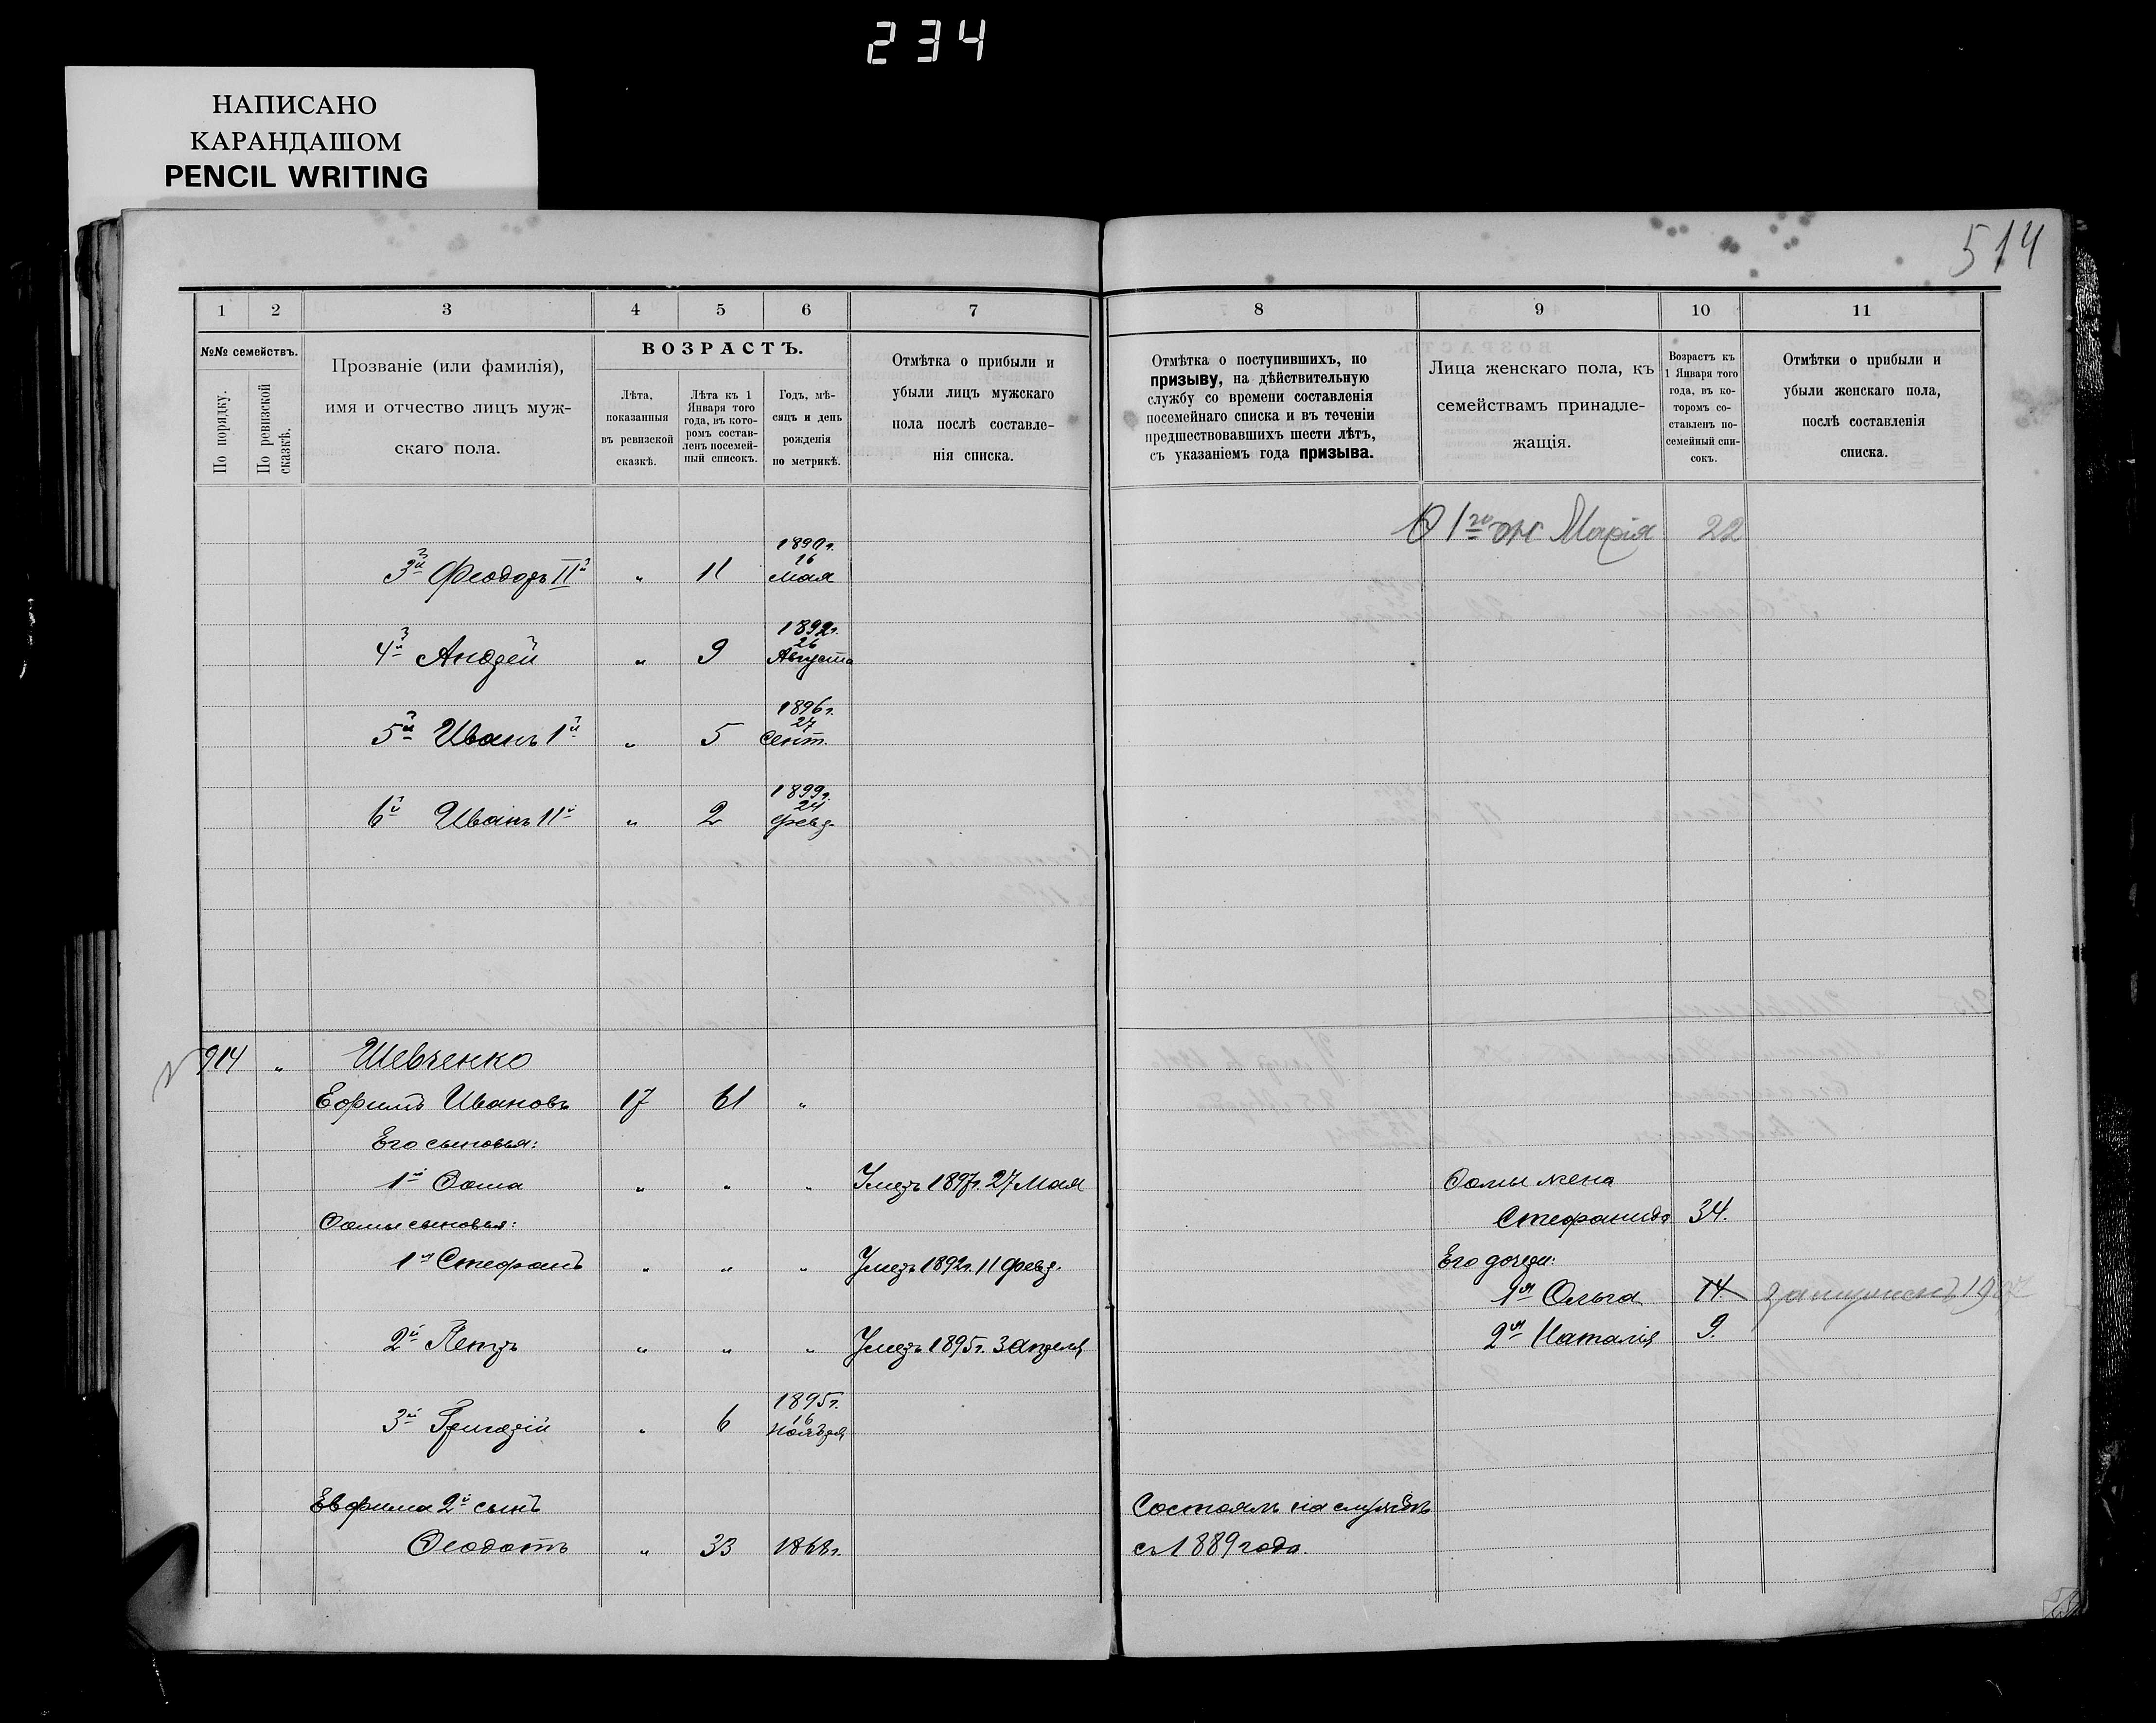 234
НАПИСАНО
КАРАНДАШОМ
PENCIL WRITING
514
1 2 3 4 5 6 7
№№ семействъ.
По порядку.
По ревизской сказкѣ.
Прозваніе (или фамилія),
имя и отчество лицъ муж-
скаго пола.
ВОЗРАСТЪ.
Лѣта,
показанныя
въ ревизской
сказкѣ.
Лѣта къ 1
Января того
года, въ кото-
ромъ состав-
ленъ посемей-
ный списокъ.
Годъ, мѣ-
сяцъ и день
рожденія
по метрикѣ.
Отмѣтка о прибыли и
убыли лицъ мужскаго
пола послѣ составле-
нія списка.
8 9 10 11
Отмѣтка о поступившихъ, по
призыву, на дѣйствительную
службу со времени составленія
посемейнаго списка и въ теченіи
предшествовавшихъ шести лѣтъ,
съ указаніемъ года призыва.
Лица женскаго пола, къ
семействамъ принадле-
жащія.
Возрастъ къ
1 Января того
года, въ ко-
торомъ со-
ставленъ по-
семейный спи-
сокъ.
Отмѣтки о прибыли и
убыли женскаго пола,
послѣ составленія
списка.
1го ж Марія 22
1890 г.
16
3й Феодоръ IIй " 11 Мая
1892 г.
26
4й Андрей " 9 Августа
1896 г.
27
5й Иванъ 1й " 5 Сент.
1899 г.
24
6й Иванъ 11й " 2 Февр.
914 " Шевченко
Ефимъ Ивановъ 17 61 "
Его сыновья:
1й Ѳома " " " Умеръ 1897 г. 27 Мая Ѳомы жена
Ѳомы сыновья: Стефанида 34.
1й Стефанъ " " " Умеръ 1892 г. 11 Февр. Его дочери:
1я Ольга 14 замужемъ 1907
2й Петръ " " " Умеръ 1895 г. 3 Апреля 2я Наталія 9.
1895 г.
16
3й Григорій " 6 Ноября
Евфима 2й сынъ Состоялъ на службѣ
Ѳеодотъ " 33 1868 г. съ 1889 года.